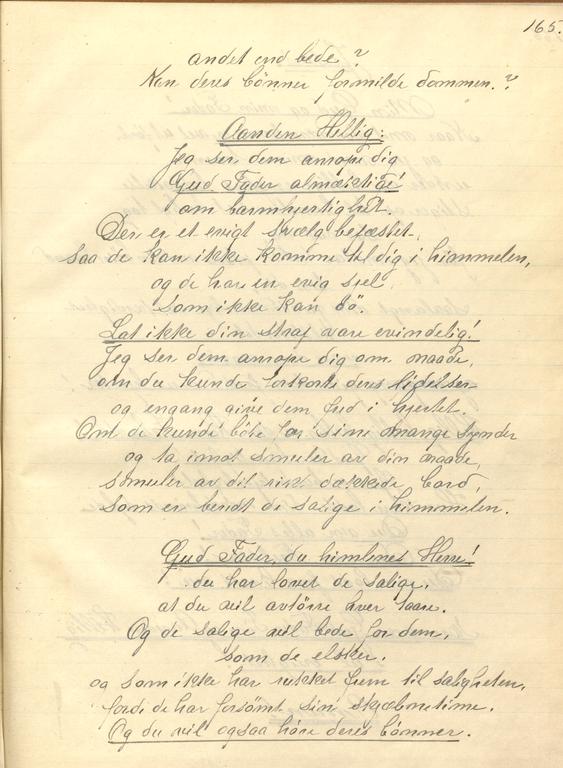 165.
andet end bede?
Kan deres bønner formilde dommen.?
Aanden Hellig:
Jeg ser dem anrope dig
Gud Fader almæktige!
om barmhjertighet.
Der er et evigt svælg befæstet
saa de kan ikke komme til dig i himmelen,
og de har en evig sjel
som ikke kan dö.
Lat ikke din straf vare evindelig!
Jeg ser dem anrope dig om naade,
om du kunde forkorte deres lidelser
og engang give dem fred i hjertet.
Om de kunde böte for sine mange synder
og ta imot smuler av din naade,
smuler av dit rikt dækkede bord,
som er beredt de salige i himmelen.
Gud Fader, du himlenes Herre!
du har lovet de salige,
at du vil avtörre hver taare.
Og de salige vil bede for dem,
som de elsker.
og som ikke har rukket frem til saligheten,
fordi de har forsömt sin skjæbnetime.
Og du vil ogsaa høre deres bønner.